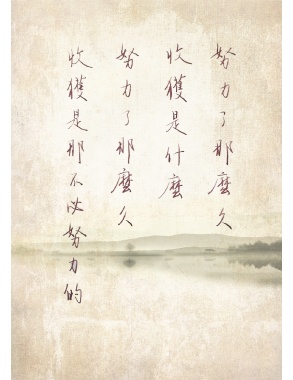 努力了那麼久
收獲是什麼
努力了那麼久
收獲是那不必努力的